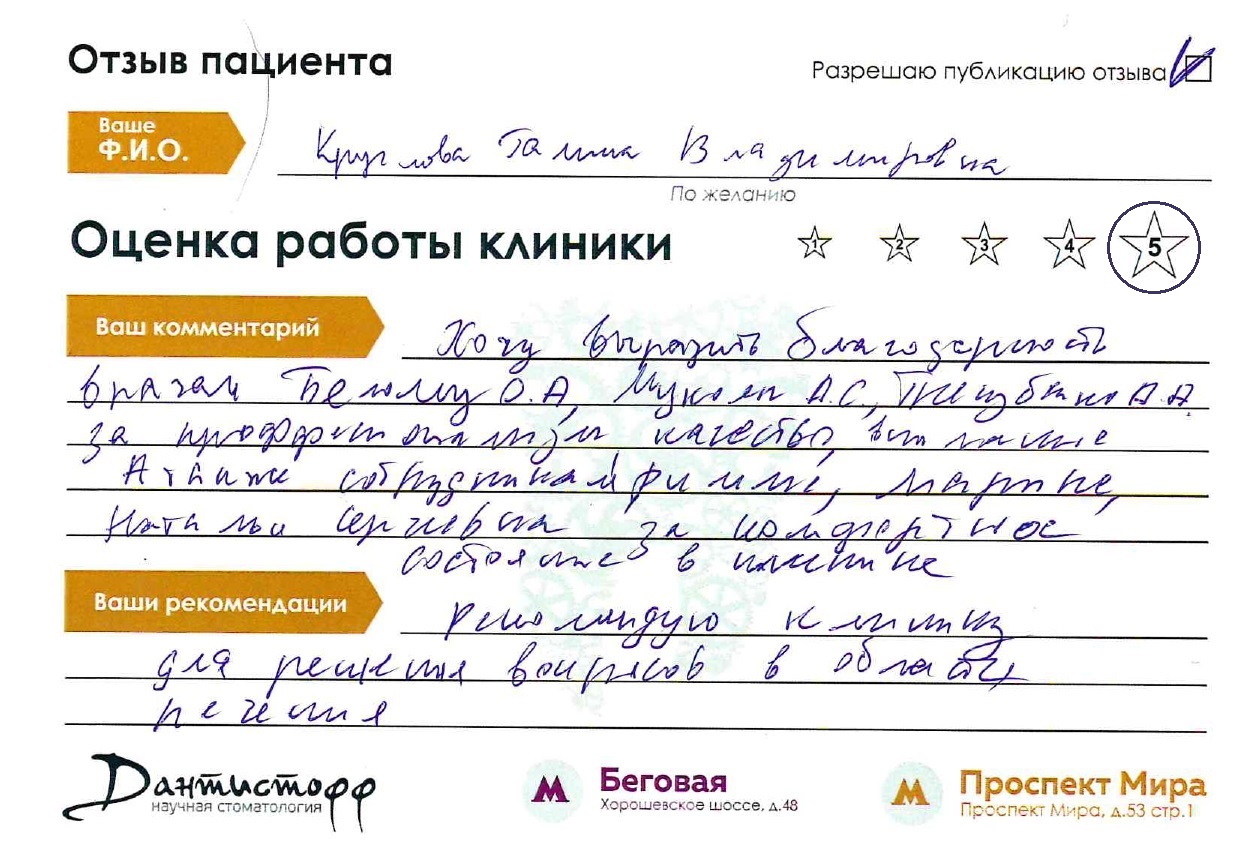 Отзыв пациента
Разрешаю публикацию отзыва
Ваше
Ф.И.О.
Круглова Галина Владимировна
По желанию
Оценка работы клиники
1 2 3 4 5
Ваш комментарий
Хочу выразить благодарность
врачам Белому О.А, А.С., А.А.
за качество, внимание
А также сотрудникам Римме, Марине,
Наталье за комфортное
состояние в клинике
Ваши рекомендации
рекомендую клинику
для решения вопросов в области
лечения
Дантистофф
научная стоматология
М Беговая
Хорошевское шоссе, д.48
М Проспект Мира
Проспект Мира, д.53 стр.1